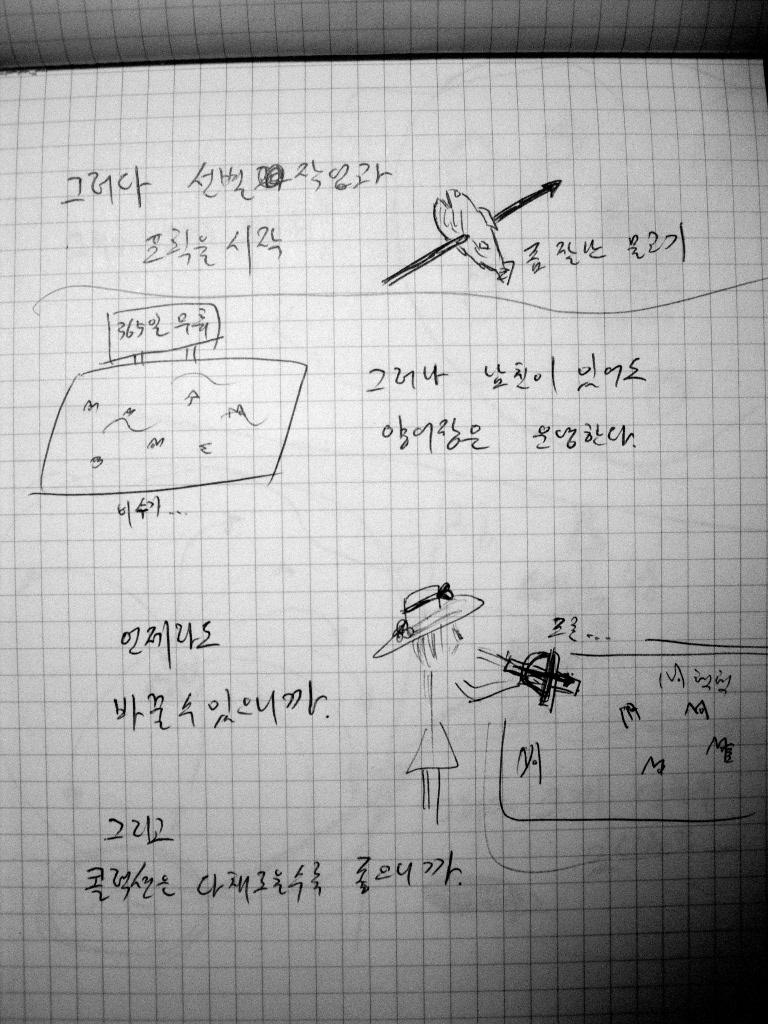 그러다 선별 작업과
포획을 시작
좀 잘난 물고기
365일 우글
그러나 남친이 있어도
양어장은 운영한다.
비수기...
언제라도
바꿀 수 있으니까.
그리고
콜렉션은 다채로울수록 좋으니까.